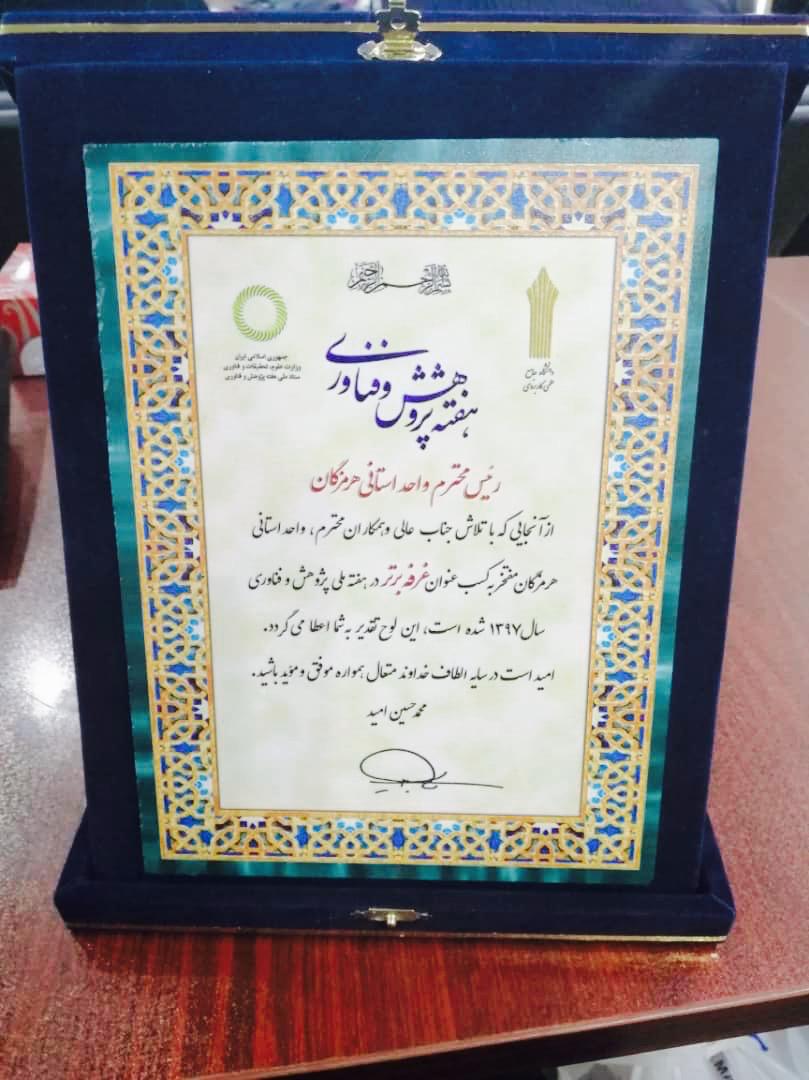 بسم الله الرحمن الرحیم
جمهوری اسلامی ایران
وزارت علوم، تحقیقات و فناوری
ستاد ملی هفته پژوهش و فناوری
دانشگاه جامع
علمی کاربردی
هفته پژوهش و فناوری
رئیس محترم واحد استانی هرمزگان
از آنجایی که با تلاش جناب عالی و همکاران محترم، واحد استانی
هرمزگان مفتخر به کسب عنوان غرفه برتر در هفته ملی پژوهش و فناوری
سال ۱۳۹۷ شده است، این لوح تقدیر به شما اعطا می گردد.
امید است در سایه الطاف خداوند متعال همواره موفق و مؤید باشید.
محمد حسین امید